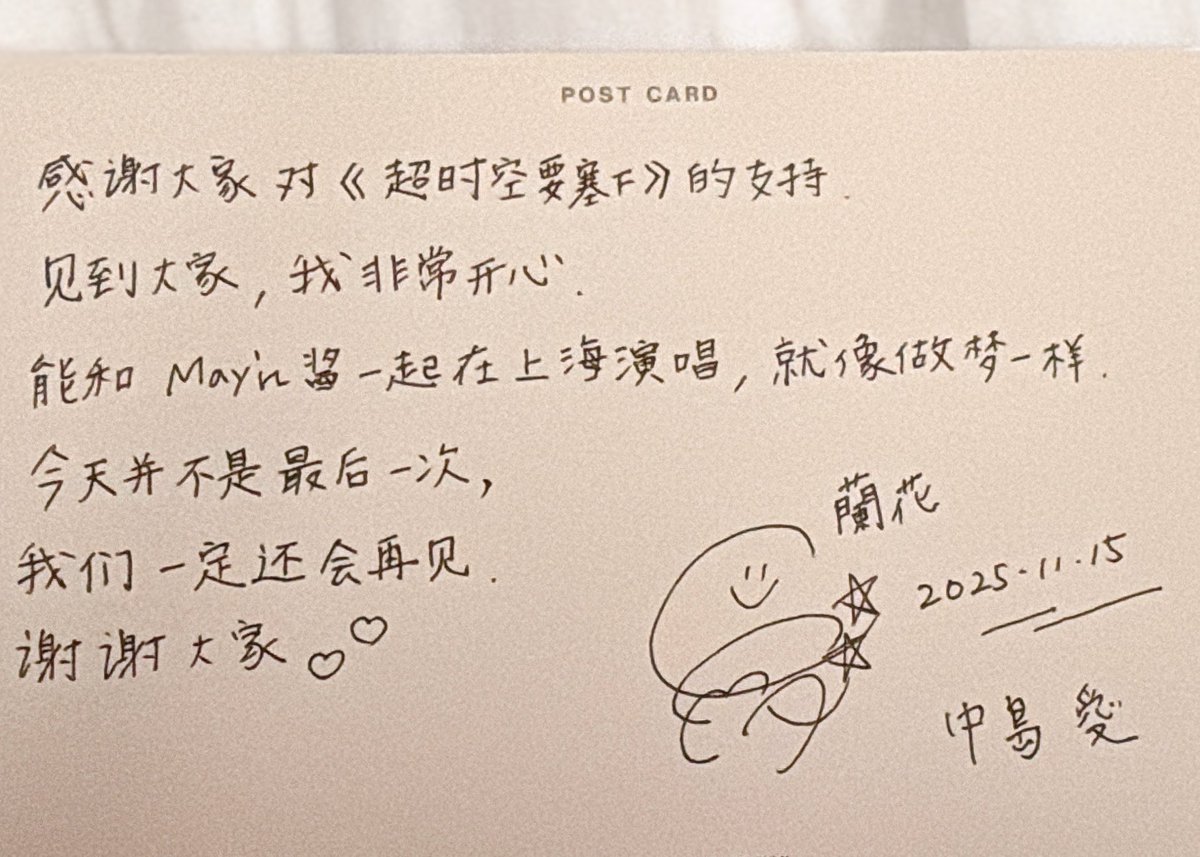 POST CARD
感谢大家对《超时空要塞F》的支持.
见到大家,我非常开心.
能和May'n酱一起在上海演唱,就像做梦一样.
今天并不是最后一次,
我们一定还会再见.
谢谢大家♡♡
蘭花
2025.11.15
中島 愛